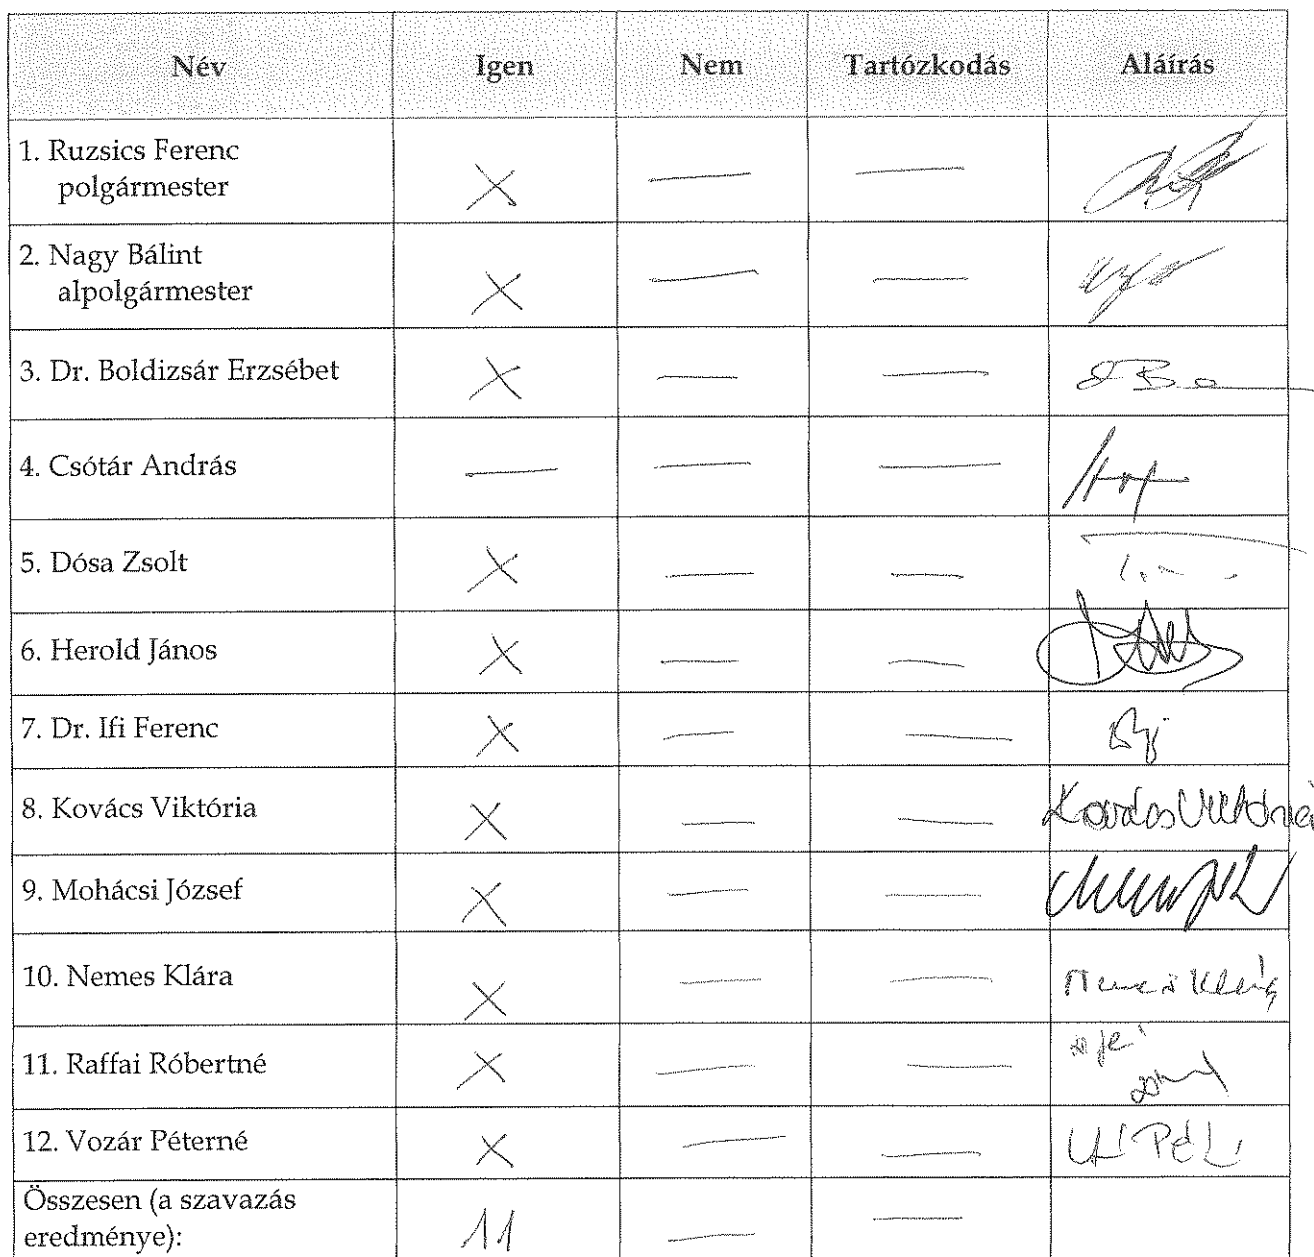 Név Igen Nem Tartózkodás Aláírás
1. Ruzsics Ferenc
polgármester X — —
2. Nagy Bálint
alpolgármester X — —
3. Dr. Boldizsár Erzsébet X — —
4. Csótár András — — —
5. Dósa Zsolt X — —
6. Herold János X — —
7. Dr. Ifi Ferenc X — —
8. Kovács Viktória X — — Kovács Viktória
9. Mohácsi József X — —
10. Nemes Klára X — — Nemes Klára
11. Raffai Róbertné X — —
12. Vozár Péterné X — —
Összesen (a szavazás
eredménye): 11 — —